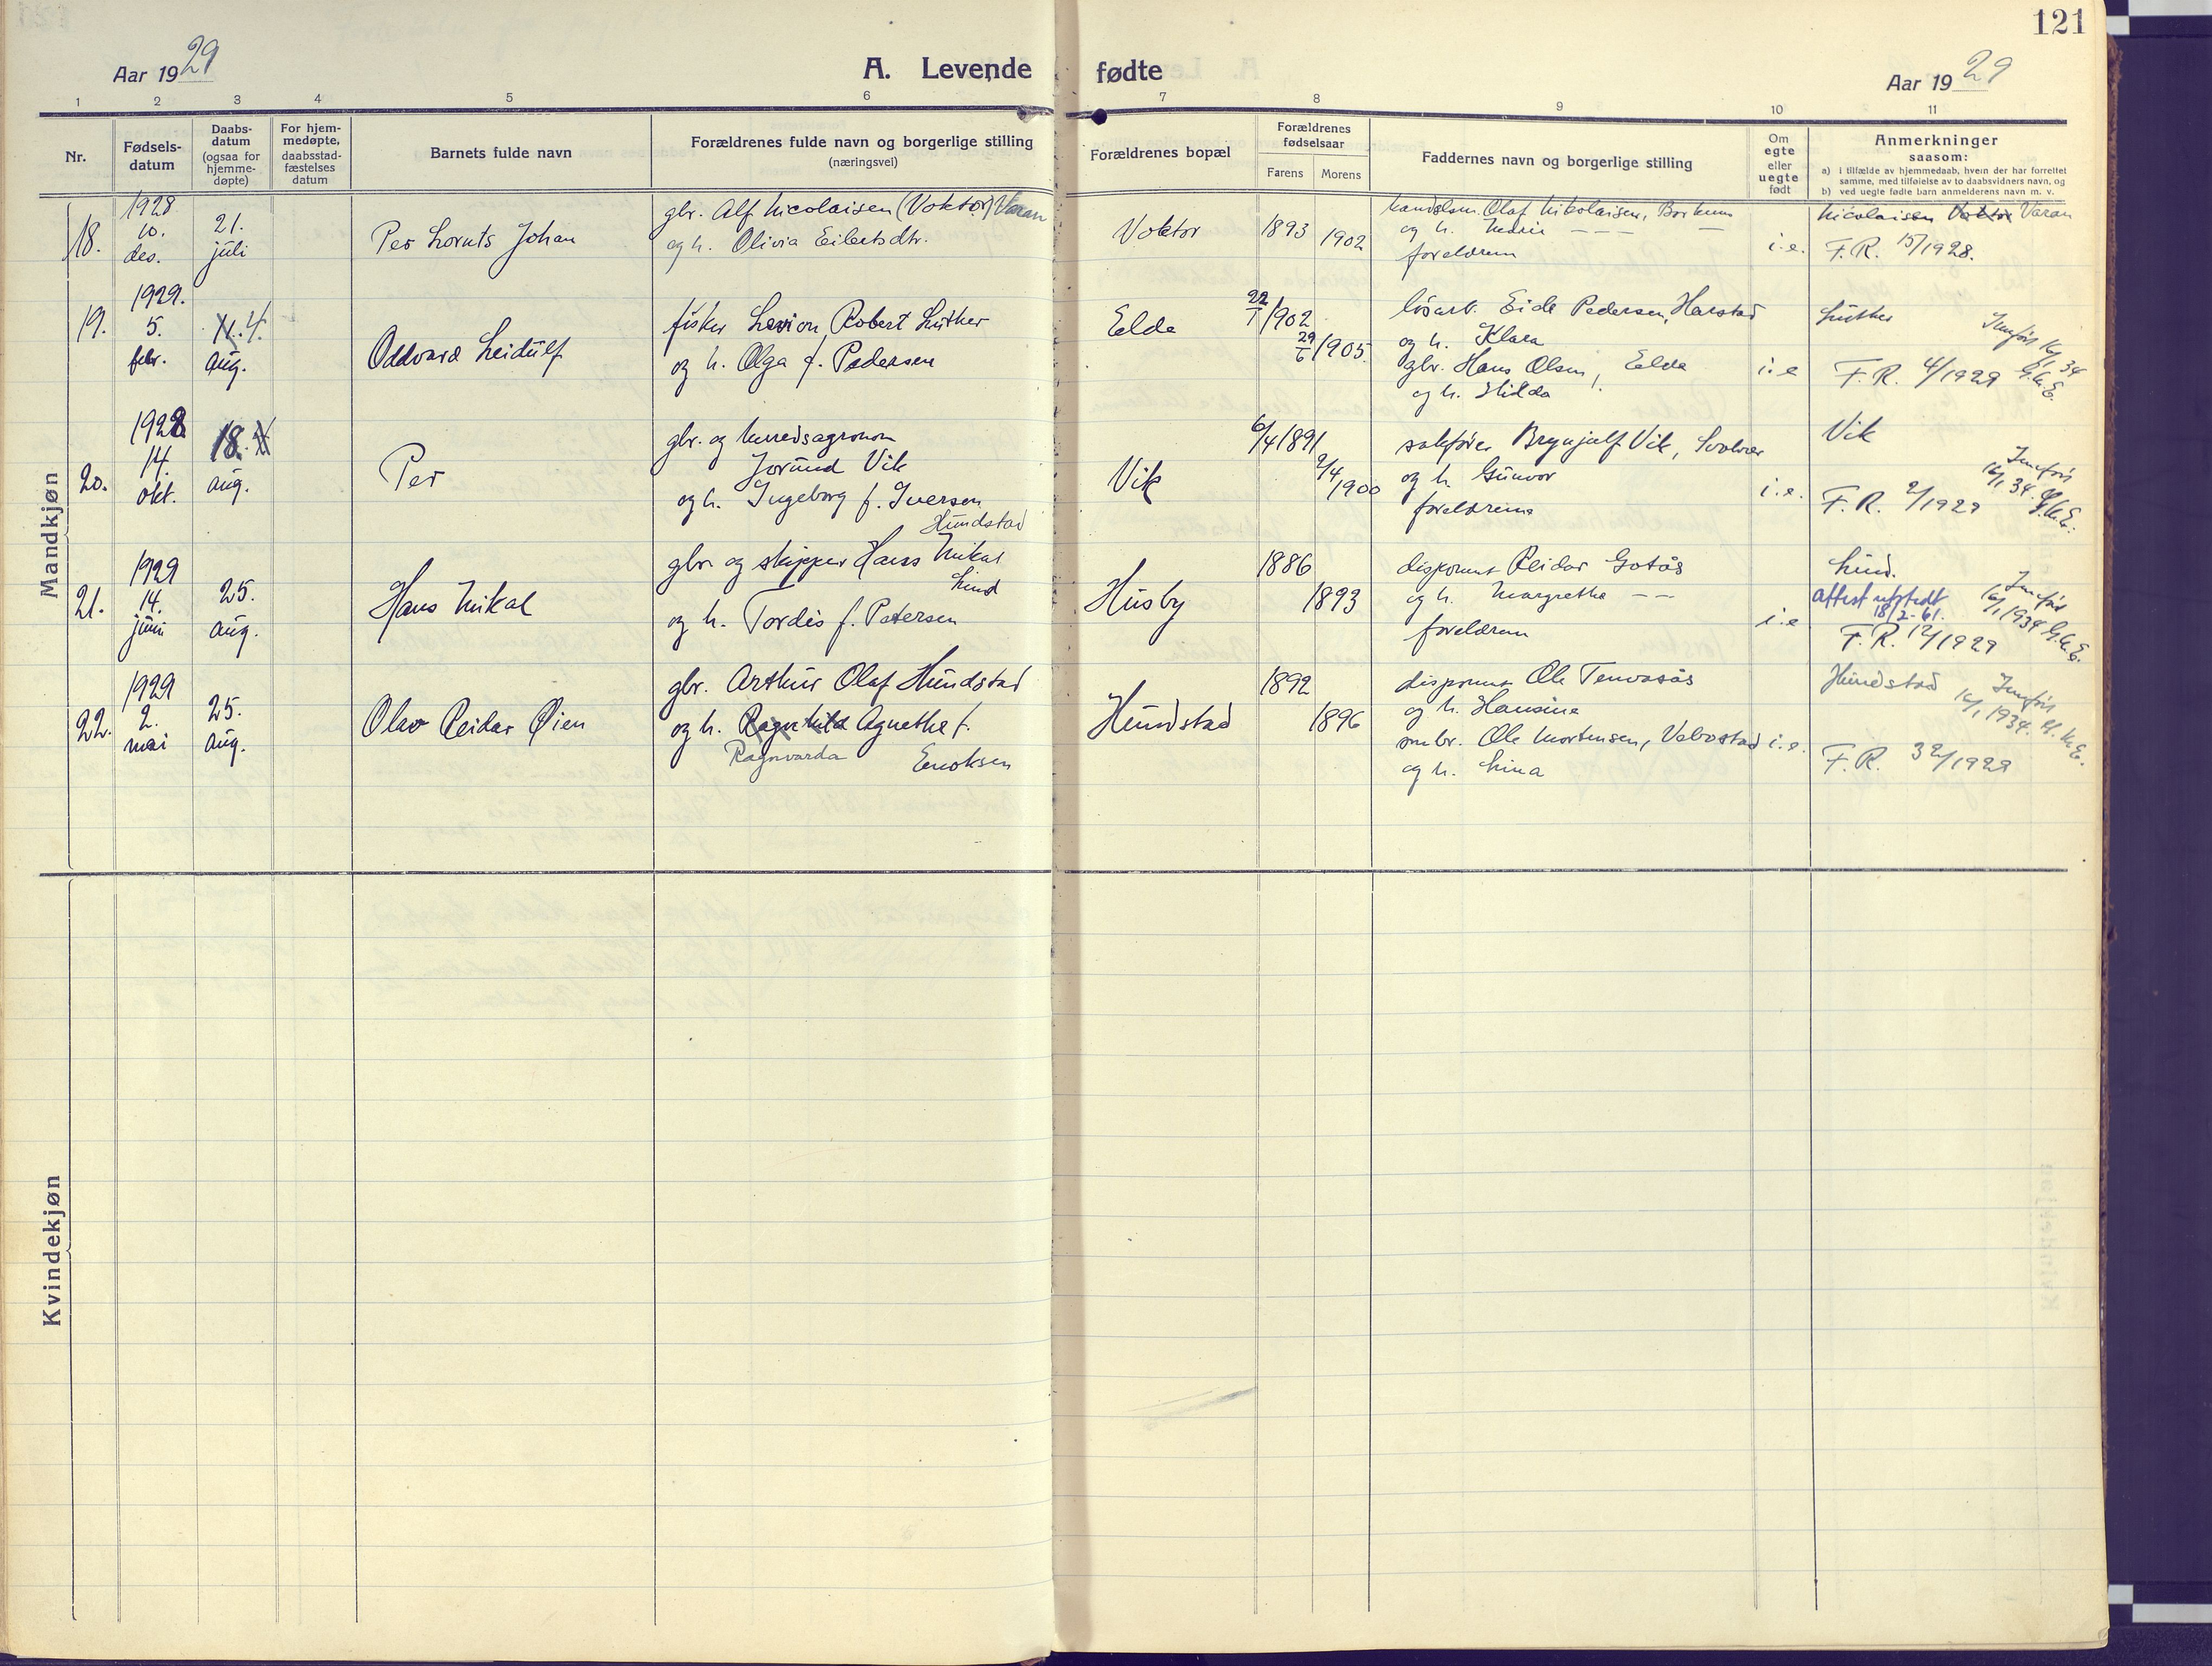 121
Aar 1929
A. Levende fødte
Aar 1929
1 2 3 4 5 6 7 8 9 10 11
Nr.
Fødsels-
datum
Daabs-
datum
(ogsaa for
hjemme-
døpte)
For hjem-
medøpte,
daabsstad-
fæstelses
datum
Barnets fulde navn
Forældrenes fulde navn og borgerlige stilling
(næringsvei)
Forældrenes bopæl
Forældrenes
fødselsaar
Farens Morens
Faddernes navn og borgerlige stilling
Om
egte
eller
uegte
født
Anmerkninger
saasom:
a) i tilfælde av hjemmedaab, hvem der har forrettet
samme, med tilføielse av to daabsvidners navn, og
b) ved uegte fødte barn anmelderens navn m. v.
Mandkjøn
18.
1928
10.
des.
21.
juli
Per Lornts Johan
gbr. Alf Nicolaisen (Voktor) Varan
og h. Olivia Eilertsdtr.
Voktor
1893
1902
handelsm. Olaf Nikolaisen,
og h.
foreldrene
i.e.
Nicolaisen Voktor Varan
F.R. 15/1928.
19.
1929.
5.
febr.
11. 4.
aug.
Oddvard Leidulf
fisker Levion Robert Luther
og h. Olga f. Pedersen
Elde
22/1 1902
29/6 1905
løsarb. Eide Pedersen, Harstad
og h. Klara
gbr. Hans Olsen, Elde
og h. Hilda
i.e
Luther
Jmfört 16/1 34
G.K.E.
F.R. 4/1929
20.
1928
14.
okt.
18.
aug.
Per
gbr. og herredsagronom
Jorund Vik
og h. Ingeborg f. Iversen
Vik
6/4 1891
2/4 1900
sakfører Brynjulf Vik, Svolvær
og h. Gunvor
foreldrene
i.e.
Vik
Jmfört
16/1 34. G.K.E.
F.R. 2/1929
21.
1929
14.
juni
25.
aug.
Hans Mikal
Hundstad
gbr. og skipper Hans Mikal
Lund
og h. Tordis f. Petersen
Husby
1886
1893
disponent Reidar Gotås
og h. Margrethe — —
foreldrene
i.e
Lund.
attest utstedt
18/2-61.
Jmfört
16/1 1934 G.K.E.
F.R. 12/1929
22.
1929
2.
mai
25.
aug.
Olav Reidar Øien
gbr. Arthur Olaf Hundstad
og h. Ragnhild Agnethe f.
Ragnvarda Enoksen
Hundstad
1892
1896
disponent Ole Tenvasås
og h. Hansine
smbr. Ole Mortensen, Vebostad
og h. Lina
i.e.
Hundstad
Jmfört
16/1 1934. G.K.E.
F.R. 32/1929
Kvindekjøn